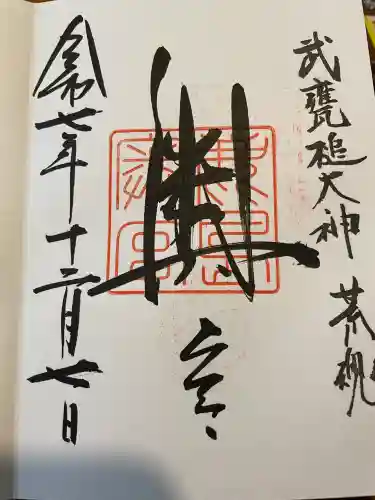 武甕槌大神 荒魂
奥宮
令和七年十二月七日